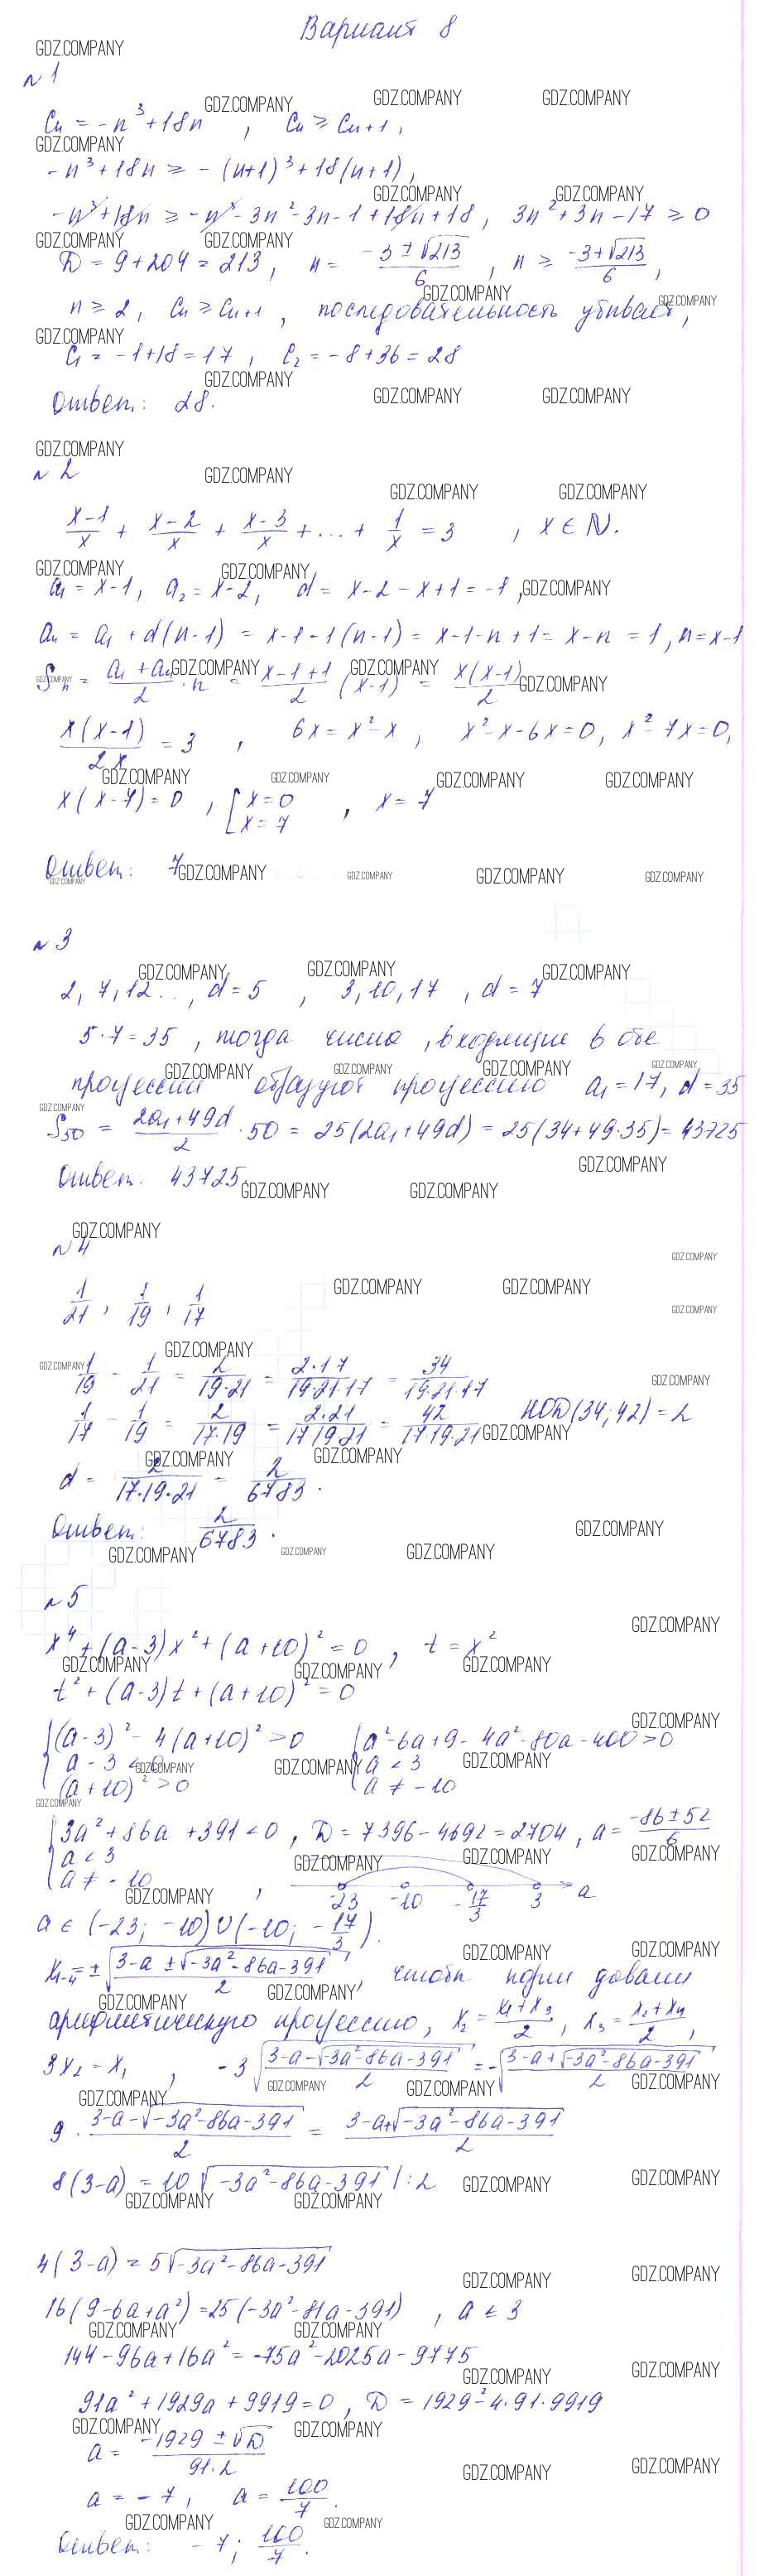 Вариант 8
№1
Cn = -n³+18n , Cn ≥ Cn+1,
-n³+18n ≥ -(n+1)³+18(n+1),
-n³+18n ≥ -n³-3n²-3n-1+18n+18, 3n²+3n-17 ≥ 0
D = 9+204 = 213, n = (-3±√213)/6 , n ≥ (-3+√213)/6 ,
n ≥ 2, Cn ≥ Cn+1 , последовательность убывает,
C1 = -1+18 = 17 , C2 = -8+36 = 28
Ответ: 28.
№2
(x-1)/x + (x-2)/x + (x-3)/x + ... + 1/x = 3 , x ∈ N.
a1 = x-1, a2 = x-2, d = x-2-x+1 = -1,
an = a1 + d(n-1) = x-1-1(n-1) = x-1-n+1 = x-n = 1, n = x-1
Sn = (a1+an)/2 · n = (x-1+1)/2 (x-1) = x(x-1)/2
x(x-1)/2x = 3 , 6x = x²-x , x²-x-6x=0, x²-7x=0,
x(x-7)=0 , [x=0 x=7 , x=7
Ответ: 7
№3
2, 7, 12..., d=5 , 3, 10, 17 , d=7
5·7=35 , тогда числа , входящие в обе
прогрессии образуют прогрессию a1=17, d=35
S50 = (2a1+49d)/2 · 50 = 25(2a1+49d) = 25(34+49·35) = 43725
Ответ: 43725.
№4
1/21 , 1/19 , 1/17
1/19 - 1/21 = 2/(19·21) = (2·17)/(19·21·17) = 34/(19·21·17)
1/17 - 1/19 = 2/(17·19) = (2·21)/(17·19·21) = 42/(17·19·21) НОД(34;42)=2
d = 2/(17·19·21) = 2/6783 .
Ответ: 2/6783 .
№5
x⁴+(a-3)x²+(a+10)²=0 , t=x²
t²+(a-3)t+(a+10)²=0
{(a-3)²-4(a+10)²>0 {a²-6a+9-4a²-80a-400>0
a-3<0 a<3
(a+10)²>0 a≠-10
{3a²+86a+391<0 , D=7396-4692=2704, a=(-86±52)/6
a<3
a≠-10 , -23 -10 -17/3 3 a
a ∈ (-23; -10)∪(-10; -17/3).
x1-4=±√((3-a±√(-3a²-86a-391))/2) , чтобы корни давали
арифметическую прогрессию, x2=(x1+x3)/2 , x3=(x2+x4)/2 ,
3x2=x1 , -3√((3-a-√(-3a²-86a-391))/2) = -√((3-a+√(-3a²-86a-391))/2)
9·(3-a-√(-3a²-86a-391))/2 = (3-a+√(-3a²-86a-391))/2
8(3-a) = 10√(-3a²-86a-391) |:2
4(3-a) = 5√(-3a²-86a-391)
16(9-6a+a²)=25(-3a²-81a-391) , a ≤ 3
144-96a+16a²=-75a²-2025a-9775
91a²+1929a+9919=0 , D=1929²-4·91·9919
a = (-1929±√D)/(91·2)
a = -7 , a = 100/7 .
Ответ: -7; 100/7 .
GDZ.COMPANY